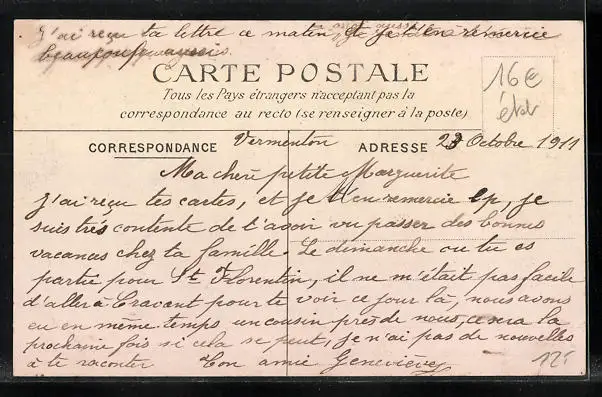 J'ai reçu ta lettre ce matin et je t'en remercie
beaucoup
CARTE POSTALE
Tous les Pays étrangers n'acceptant pas la
correspondance au recto (se renseigner à la poste)
16€
CORRESPONDANCE Vermenton ADRESSE 23 Octobre 1911
Ma chère petite Marguerite
J'ai reçu tes cartes, et je t'en remercie bp, je
suis très contente de t'avoir vu passer des bonnes
vacances chez ta famille. Le dimanche ou tu es
partie pour St Florentin, il ne m'était pas facile
d'aller à Cravant pour te voir ce jour là, nous avons
eu en même temps un cousin près de nous, ce sera la
prochaine fois si cela se peut, je n'ai pas de nouvelles
à te raconter Ton amie Geneviève
12-